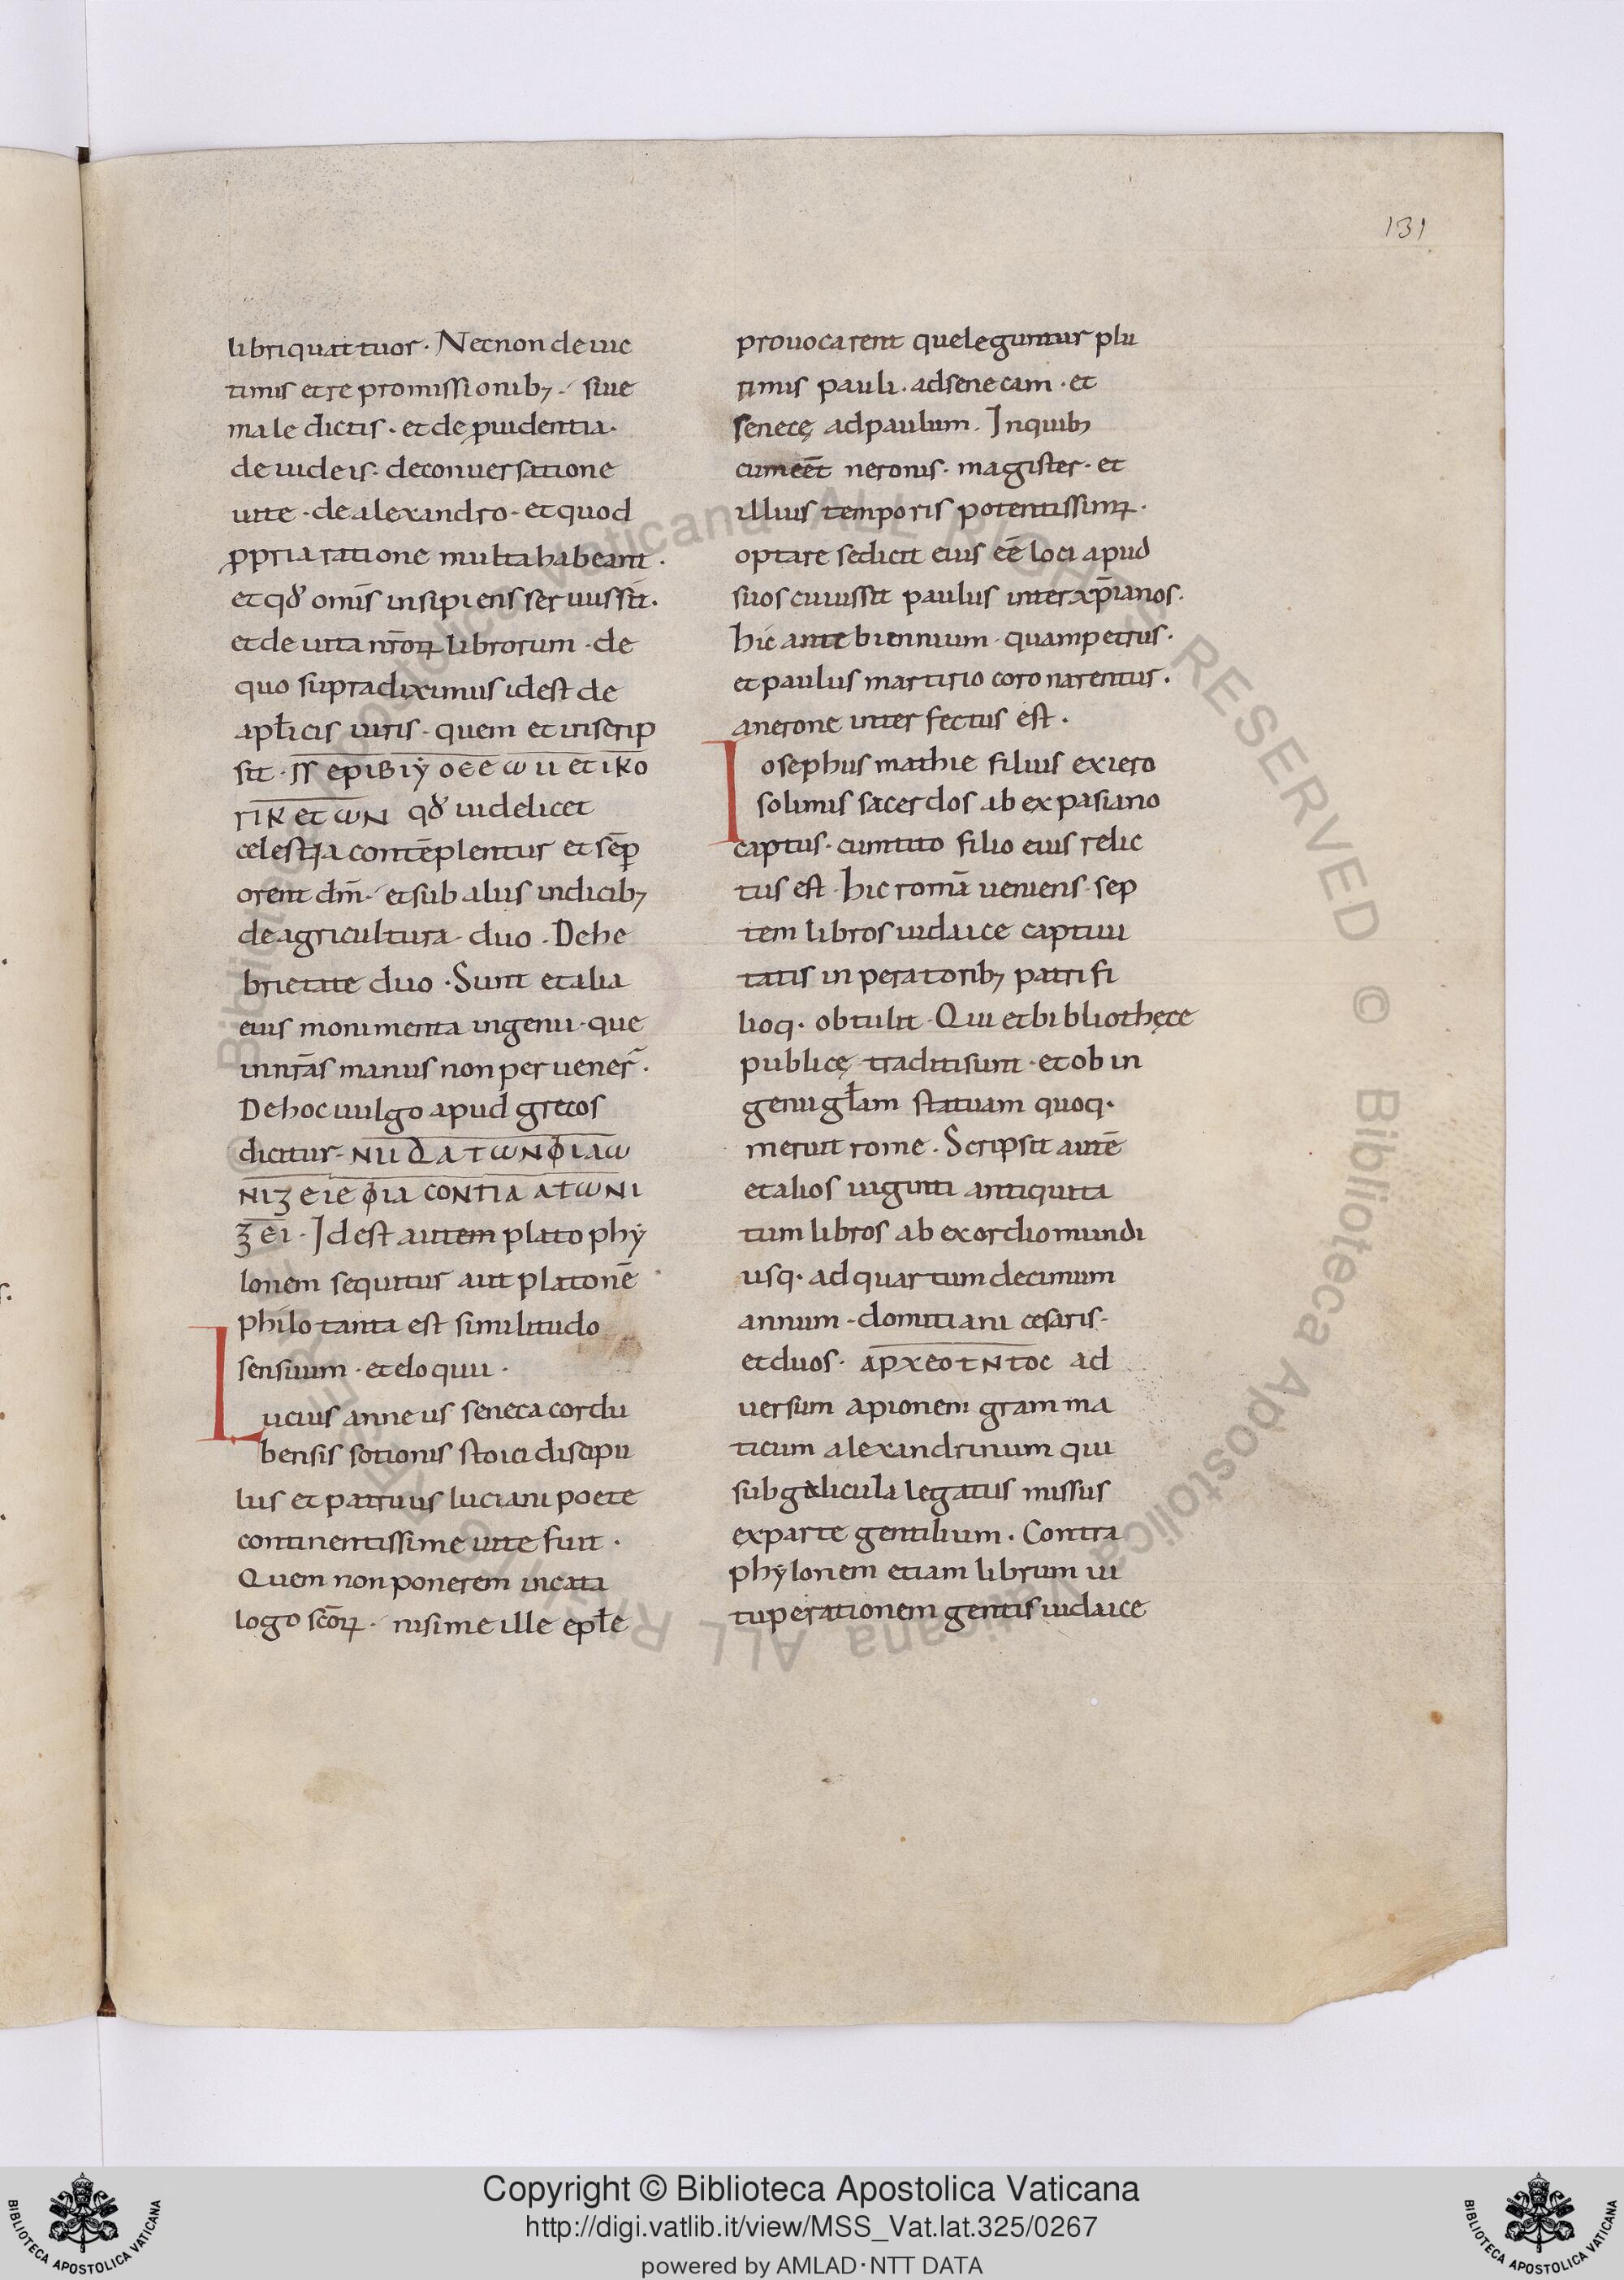 131
libri quattuor · Necnon de uic
timis et re promissionib; · siue
male dictis · et de ꝓuidentia ·
de iudeis · de conuersatione
uite · de alexandro · et quod
ꝓpria ratione multa habeant ·
et qđ om̄is insipiens seruus sit ·
et de uita nr̄oꝝ librorum · de
quo supradiximus id est de
apłicis uiris · quem et inscrip
sit ·
qđ uidelicet
celestia contēplentur et sēp
orent dm̄ · et sub aliis indicib;
de agricultura · duo · De he
brietate duo · Sunt et alia
eius monimenta ingenii · que
in nr̄as manus non peruener̄ ·
De hoc uulgo apud grecos
dicitur · ΝΠ ΠΛΑΤωΝ ΦΙΛω
ΝΙΖΕΙ Ε ΦΙΛ CONTIΛ ΑΤωΝΙ
ΖΕΙ · Id est autem plato phẏ
lonem sequitur aut platonē
philo tanta est similitudo
sensuum · et eloquii ·
Lucius anneus seneca cordu
bensis sotionis stoici discipu
lus et patruus luciani poete
continentissime uite fuit ·
Quem non ponerem in cata
logo scōꝝ · nisi me ille epłe
prouocarent que leguntur plu
rimis pauli · ad senecam · et
senecę ad paulum · In quib;
cum eēt neronis · magister · et
illius temporis potentissimꝝ ·
optare se dicit eius eē loci apud
suos cuius sit paulus inter xp̄ianos ·
hic ante biennium · quam petrus ·
et paulus martirio coronarentur ·
a nerone interfectus est ·
Iosephus mathie filius ex iero
solimis sacerdos ab expasiano
captus · cum tito filio eius relic
tus est · hic romā ueniens · sep
tem libros iudaice captiui
tatis inperatorib; patri fi
lioq· obtulit · Qui et bibliothęce
publicę traditi sunt · et ob in
genii głam statuam quoq·
meruit rome · Scripsit autē
et alios uiginti antiquita
tum libros ab exordio mundi
usq· ad quartum decimum
annum · domitiani cesaris ·
et duos · ΑΡΧΕΟΤΝΤΟC ad
uersum apionem gramma
ticum alexandrinum qui
sub galicula legatus missus
ex parte gentilium · Contra
phẏlonem etiam librum ui
tuperationem gentis iudaice
© Biblioteca Apostolica Vaticana ALL RIGHTS RESERVED © Biblioteca Apostolica Vaticana ALL RIGHTS RESERVED
Copyright © Biblioteca Apostolica Vaticana
http://digi.vatlib.it/view/MSS_Vat.lat.325/0267
powered by AMLAD·NTT DATA
BIBLIOTECA APOSTOLICA VATICANA
BIBLIOTECA APOSTOLICA VATICANA